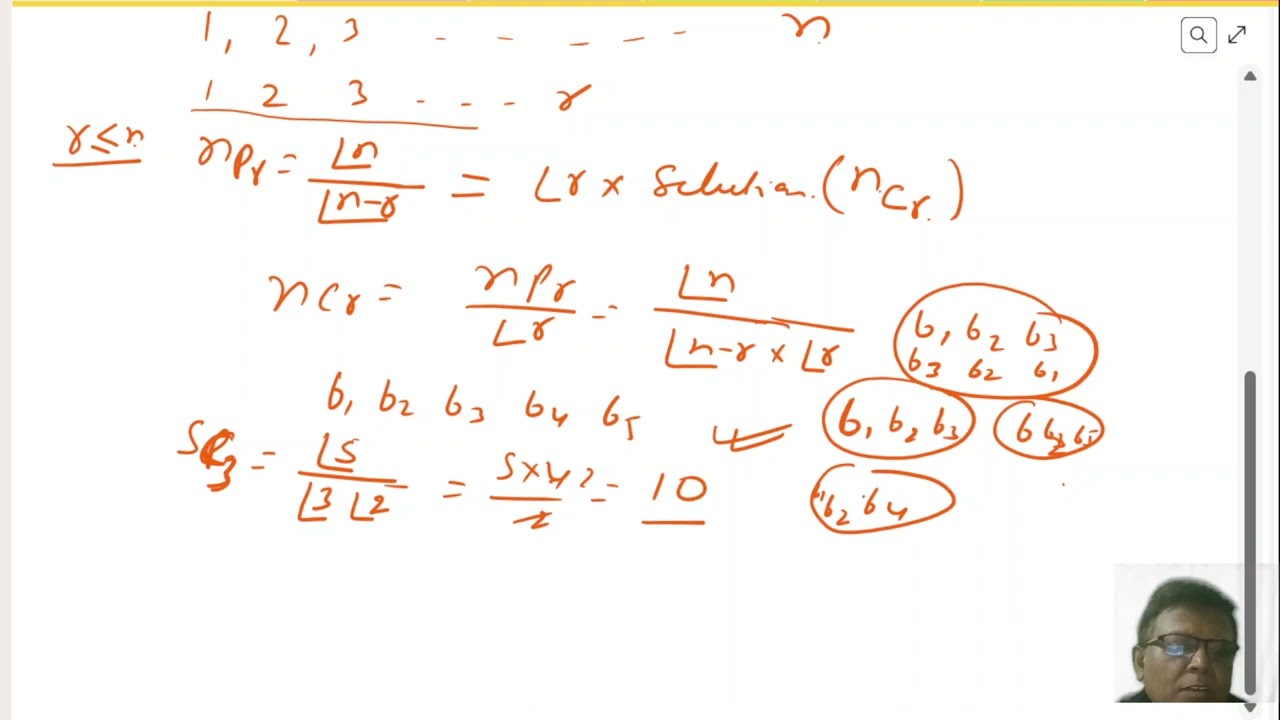 1, 2, 3 - - - - - n
1 2 3 - - - r
r ≤ n nPr = ⌊n / ⌊n-r = ⌊r × Solution (nCr)
nCr = nPr / ⌊r = ⌊n / ⌊n-r × ⌊r
b1 b2 b3
b3 b2 b1
b1 b2 b3 b4 b5
b1 b2 b3
5C3 = ⌊5 / ⌊3 ⌊2 = 5×4 / 2 = 10
b2 b4